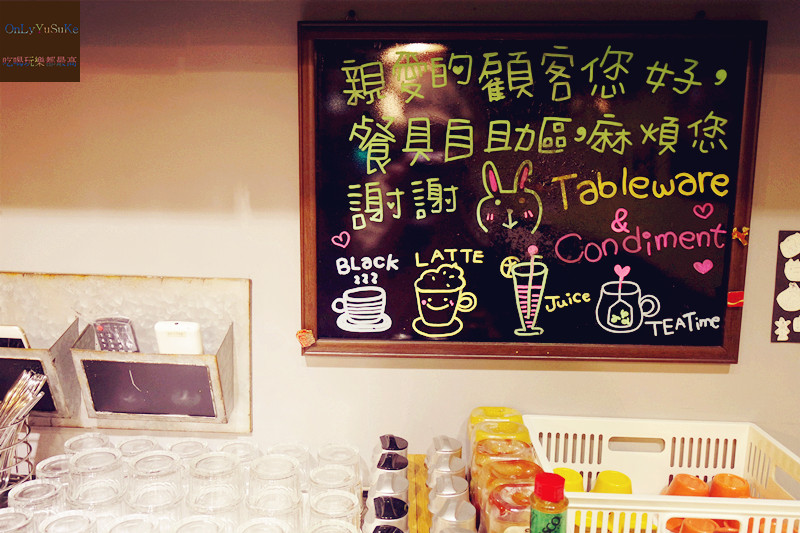 OnLyYuSuKe
吃喝玩樂都最高
親愛的顧客您好，
餐具自助區，麻煩您
謝謝
Tableware
&
Condiment
BLack
LATTE
Juice
TEATime